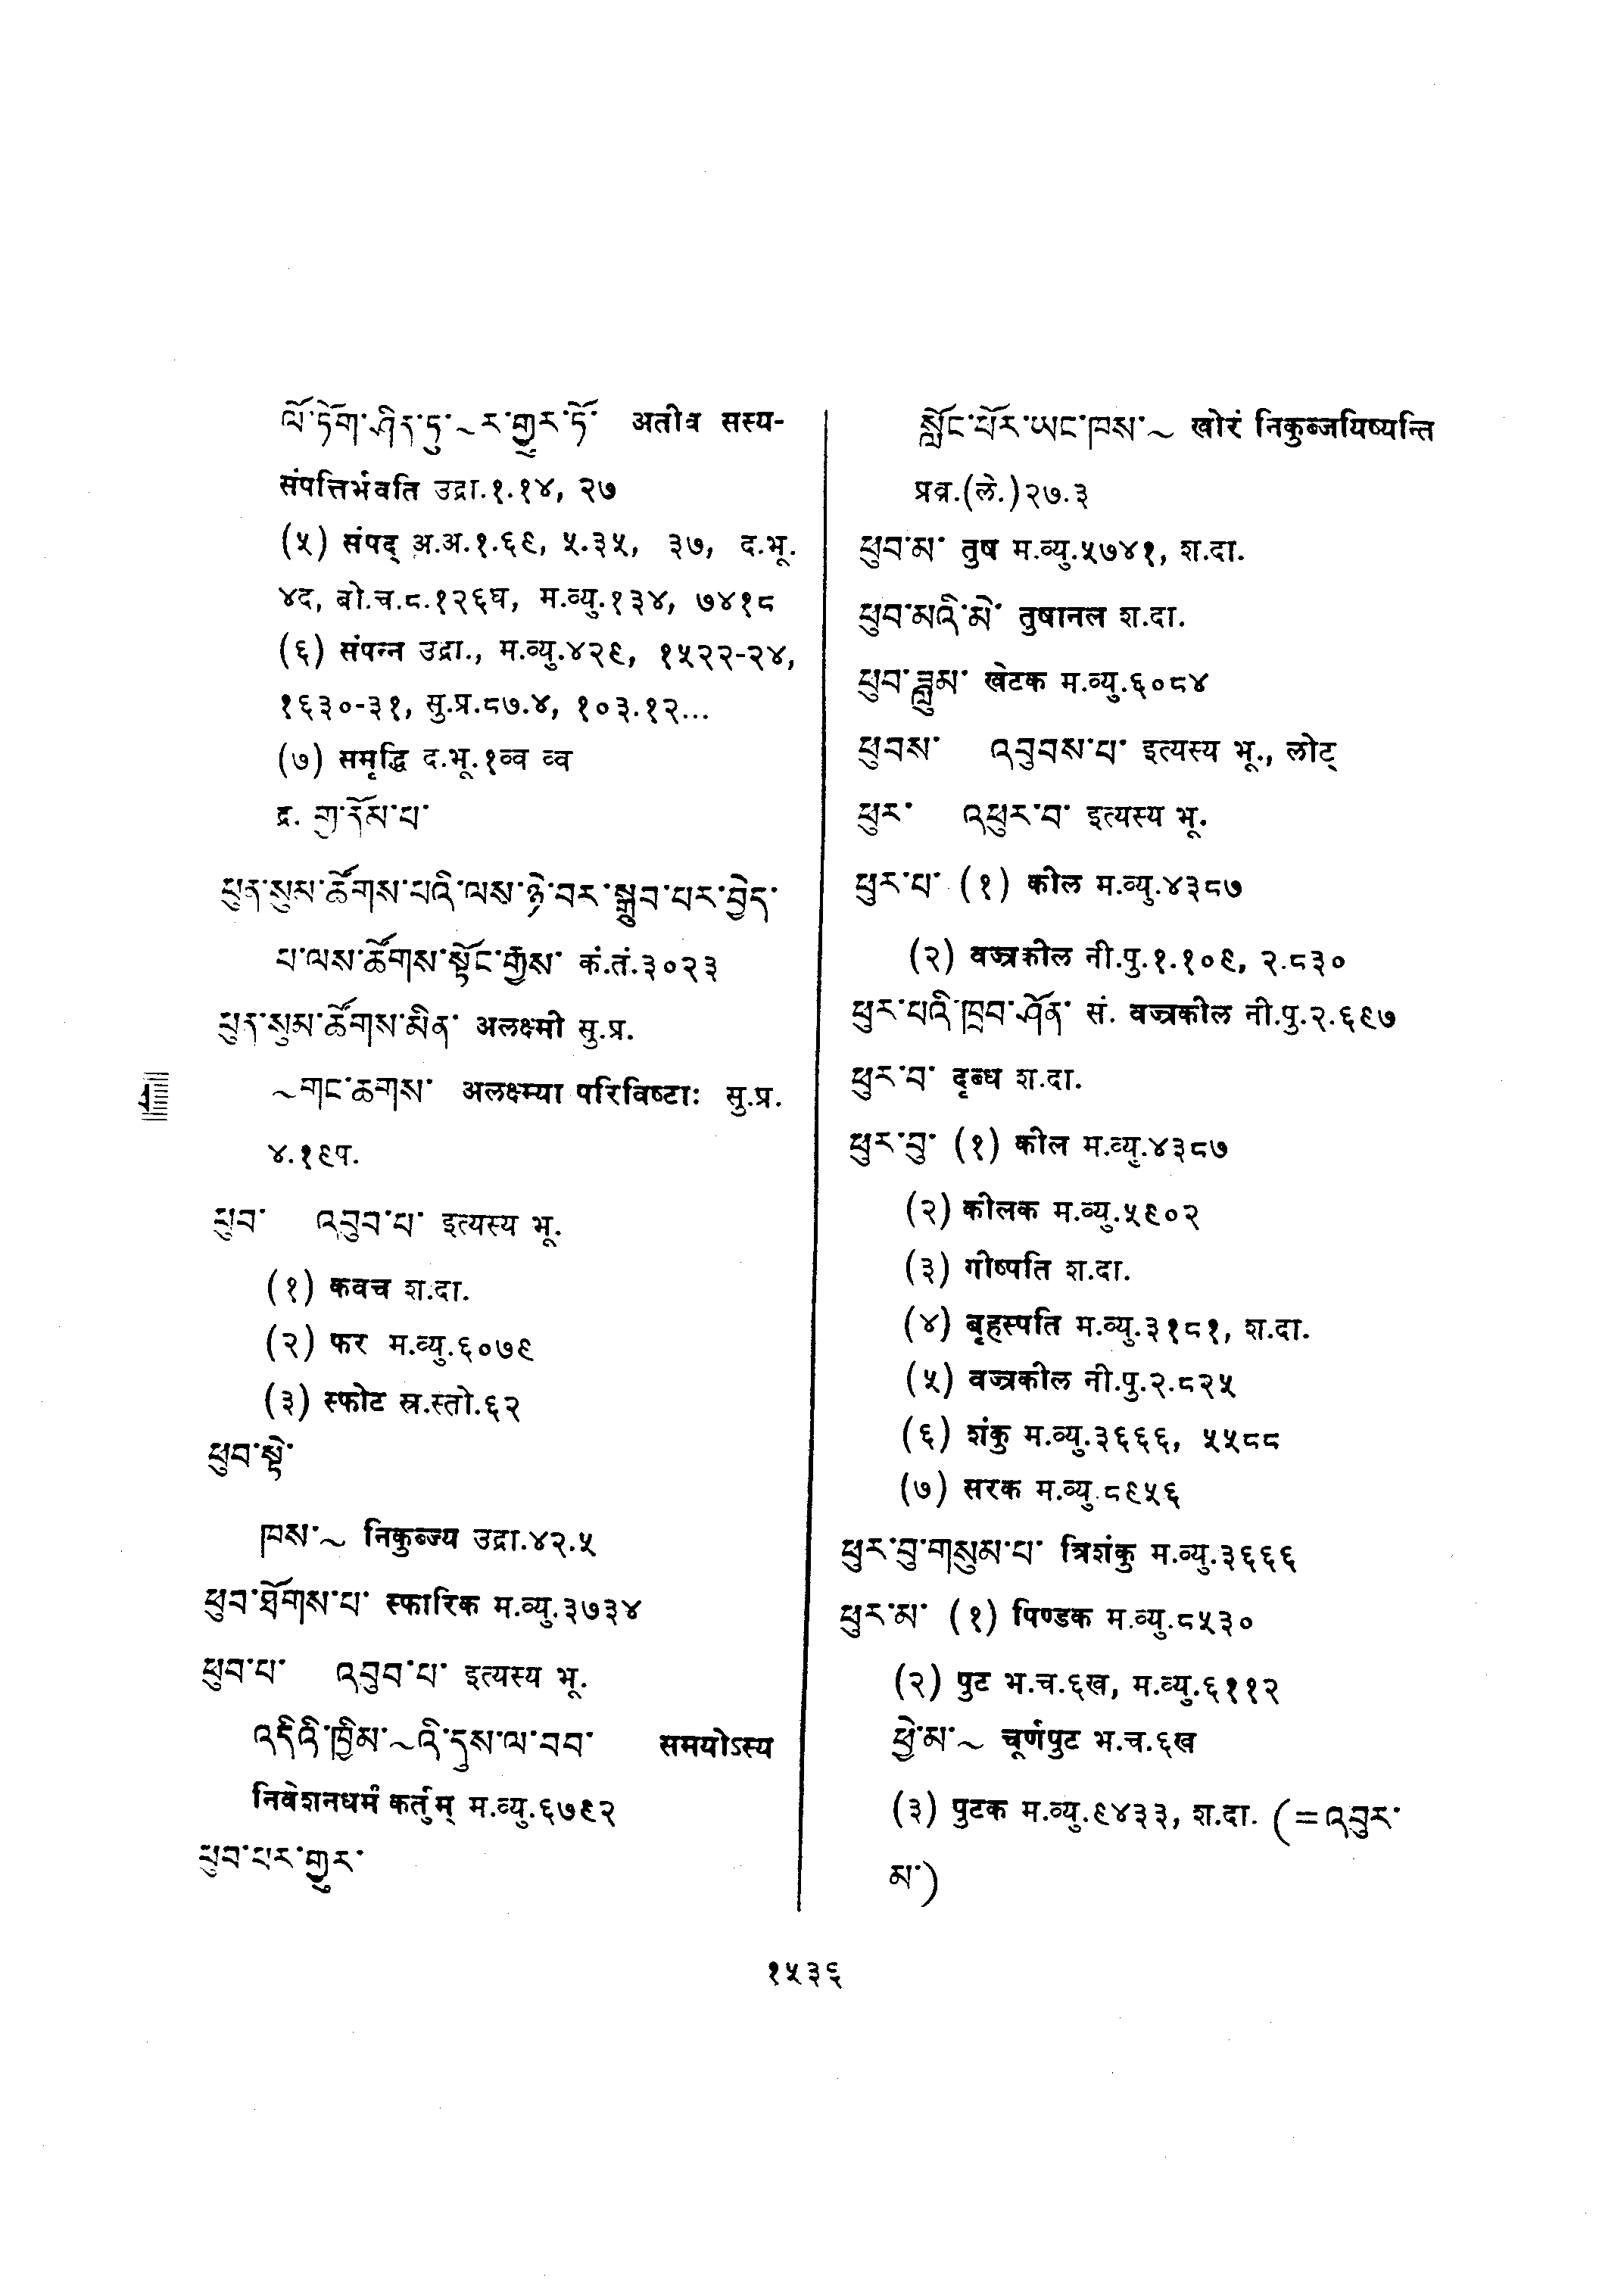 ལོ་ཏོག་ཤིན་ཏུ་~ར་གྱུར་ཏོ་ अतीव सस्य-
संपत्तिर्भवति उद्रा.१.१४, २७
(५) संपद् अ.अ.१.६९, ५.३५, ३७, द.भू.
४द, बो.च.८.१२६घ, म.व्यु.१३४, ७४१८
(६) संपन्न उद्रा., म.व्यु.४२९, १५२२-२४,
१६३०-३१, सु.प्र.८७.४, १०३.१२...
(७) समृद्धि द.भू.१व्व व्व
द्र. གྲ་རོམ་པ་
ཕུན་སུམ་ཚོགས་པའི་ལས་ཉེ་བར་སྒྲུབ་པར་བྱེད་
པ་ལས་ཚོགས་སྟོང་རྒྱས་ कं.तं.३०२३
ཕུན་སུམ་ཚོགས་མིན་ अलक्ष्मी सु.प्र.
~གང་ཆགས་ अलक्ष्म्या परिविष्टाः सु.प्र.
४.१९प.
ཕུབ་ འབུབ་པ་ इत्यस्य भू.
(१) कवच श.दा.
(२) फर म.व्यु.६०७९
(३) स्फोट स्र.स्तो.६२
ཕུབ་སྟེ་
ཁས་~ निकुब्ज्य उद्रा.४२.५
ཕུབ་ཐོགས་པ་ स्फारिक म.व्यु.३७३४
ཕུབ་པ་ འབུབ་པ་ इत्यस्य भू.
འདིའི་ཁྱིམ་~འི་དུས་ལ་བབ་ समयोऽस्य
निवेशनधर्मं कर्तुम् म.व्यु.६७९२
ཕུབ་པར་གྱུར་
སློང་པོར་ཡང་ཁས་~ खोरं निकुब्जयिष्यन्ति
प्रव्र.(ले.)२७.३
ཕུབ་མ་ तुष म.व्यु.५७४१, श.दा.
ཕུབ་མའི་མེ་ तुषानल श.दा.
ཕུབ་ཟླུམ་ खेटक म.व्यु.६०८४
ཕུབས་ འབུབས་པ་ इत्यस्य भू., लोट्
ཕུར་ འཕུར་བ་ इत्यस्य भू.
ཕུར་པ་ (१) कील म.व्यु.४३८७
(२) वज्रकील नी.पु.१.१०९, २.८३०
ཕུར་པའི་ཁྲབ་ཤོན་ सं. वज्रकील नी.पु.२.६९७
ཕུར་བ་ दृब्ध श.दा.
ཕུར་བུ་ (१) कील म.व्यु.४३८७
(२) कीलक म.व्यु.५९०२
(३) गीष्पति श.दा.
(४) बृहस्पति म.व्यु.३१८१, श.दा.
(५) वज्रकील नी.पु.२.८२५
(६) शंकु म.व्यु.३६६६, ५५८८
(७) सरक म.व्यु.८९५६
ཕུར་བུ་གསུམ་པ་ त्रिशंकु म.व्यु.३६६६
ཕུར་མ་ (१) पिण्डक म.व्यु.८५३०
(२) पुट भ.च.६ख, म.व्यु.६११२
ཕྱེ་མ་~ चूर्णपुट भ.च.६ख
(३) पुटक म.व्यु.९४३३, श.दा. (=འབུར་
མ་)
१५३६